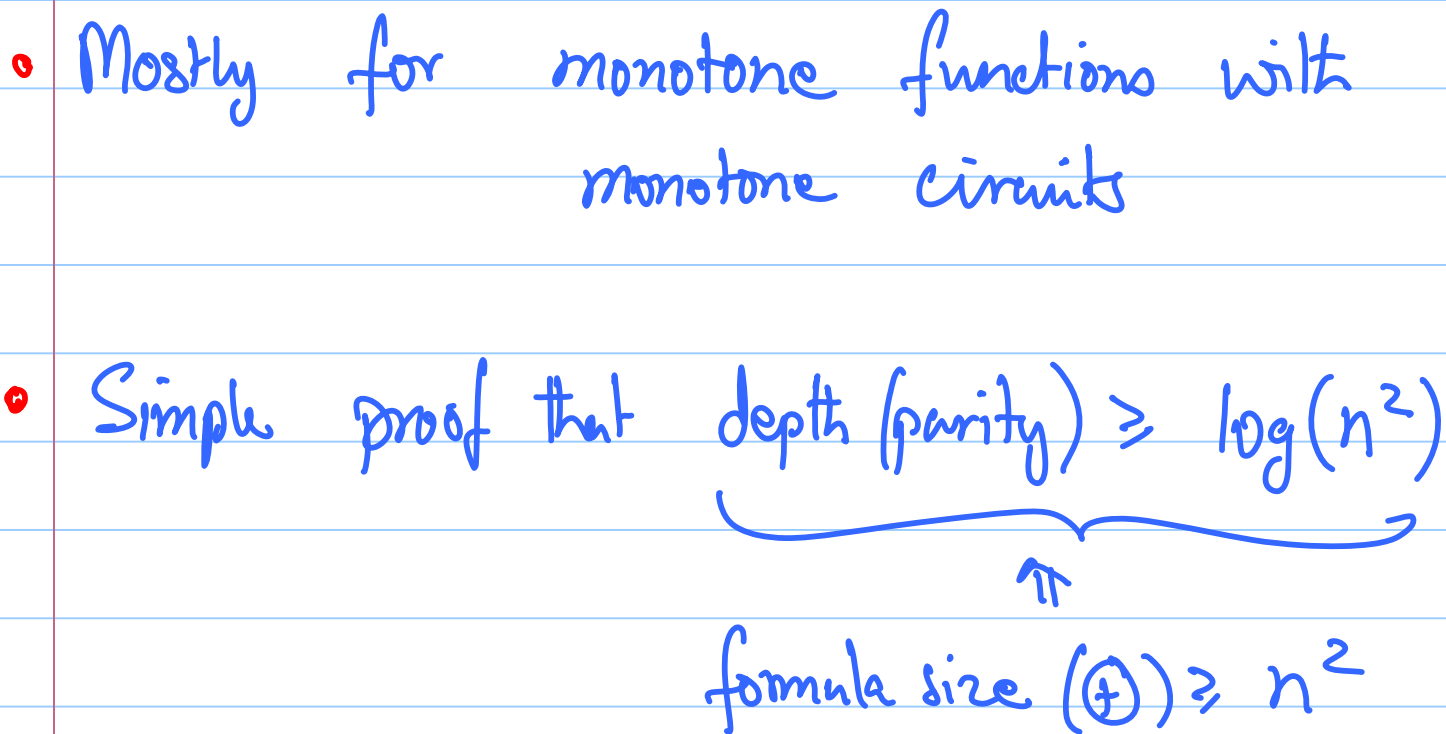 Mostly for monotone functions with
monotone circuits
Simple proof that depth (parity) ≥ log(n²)
⇑
formula size (⊕) ≥ n²